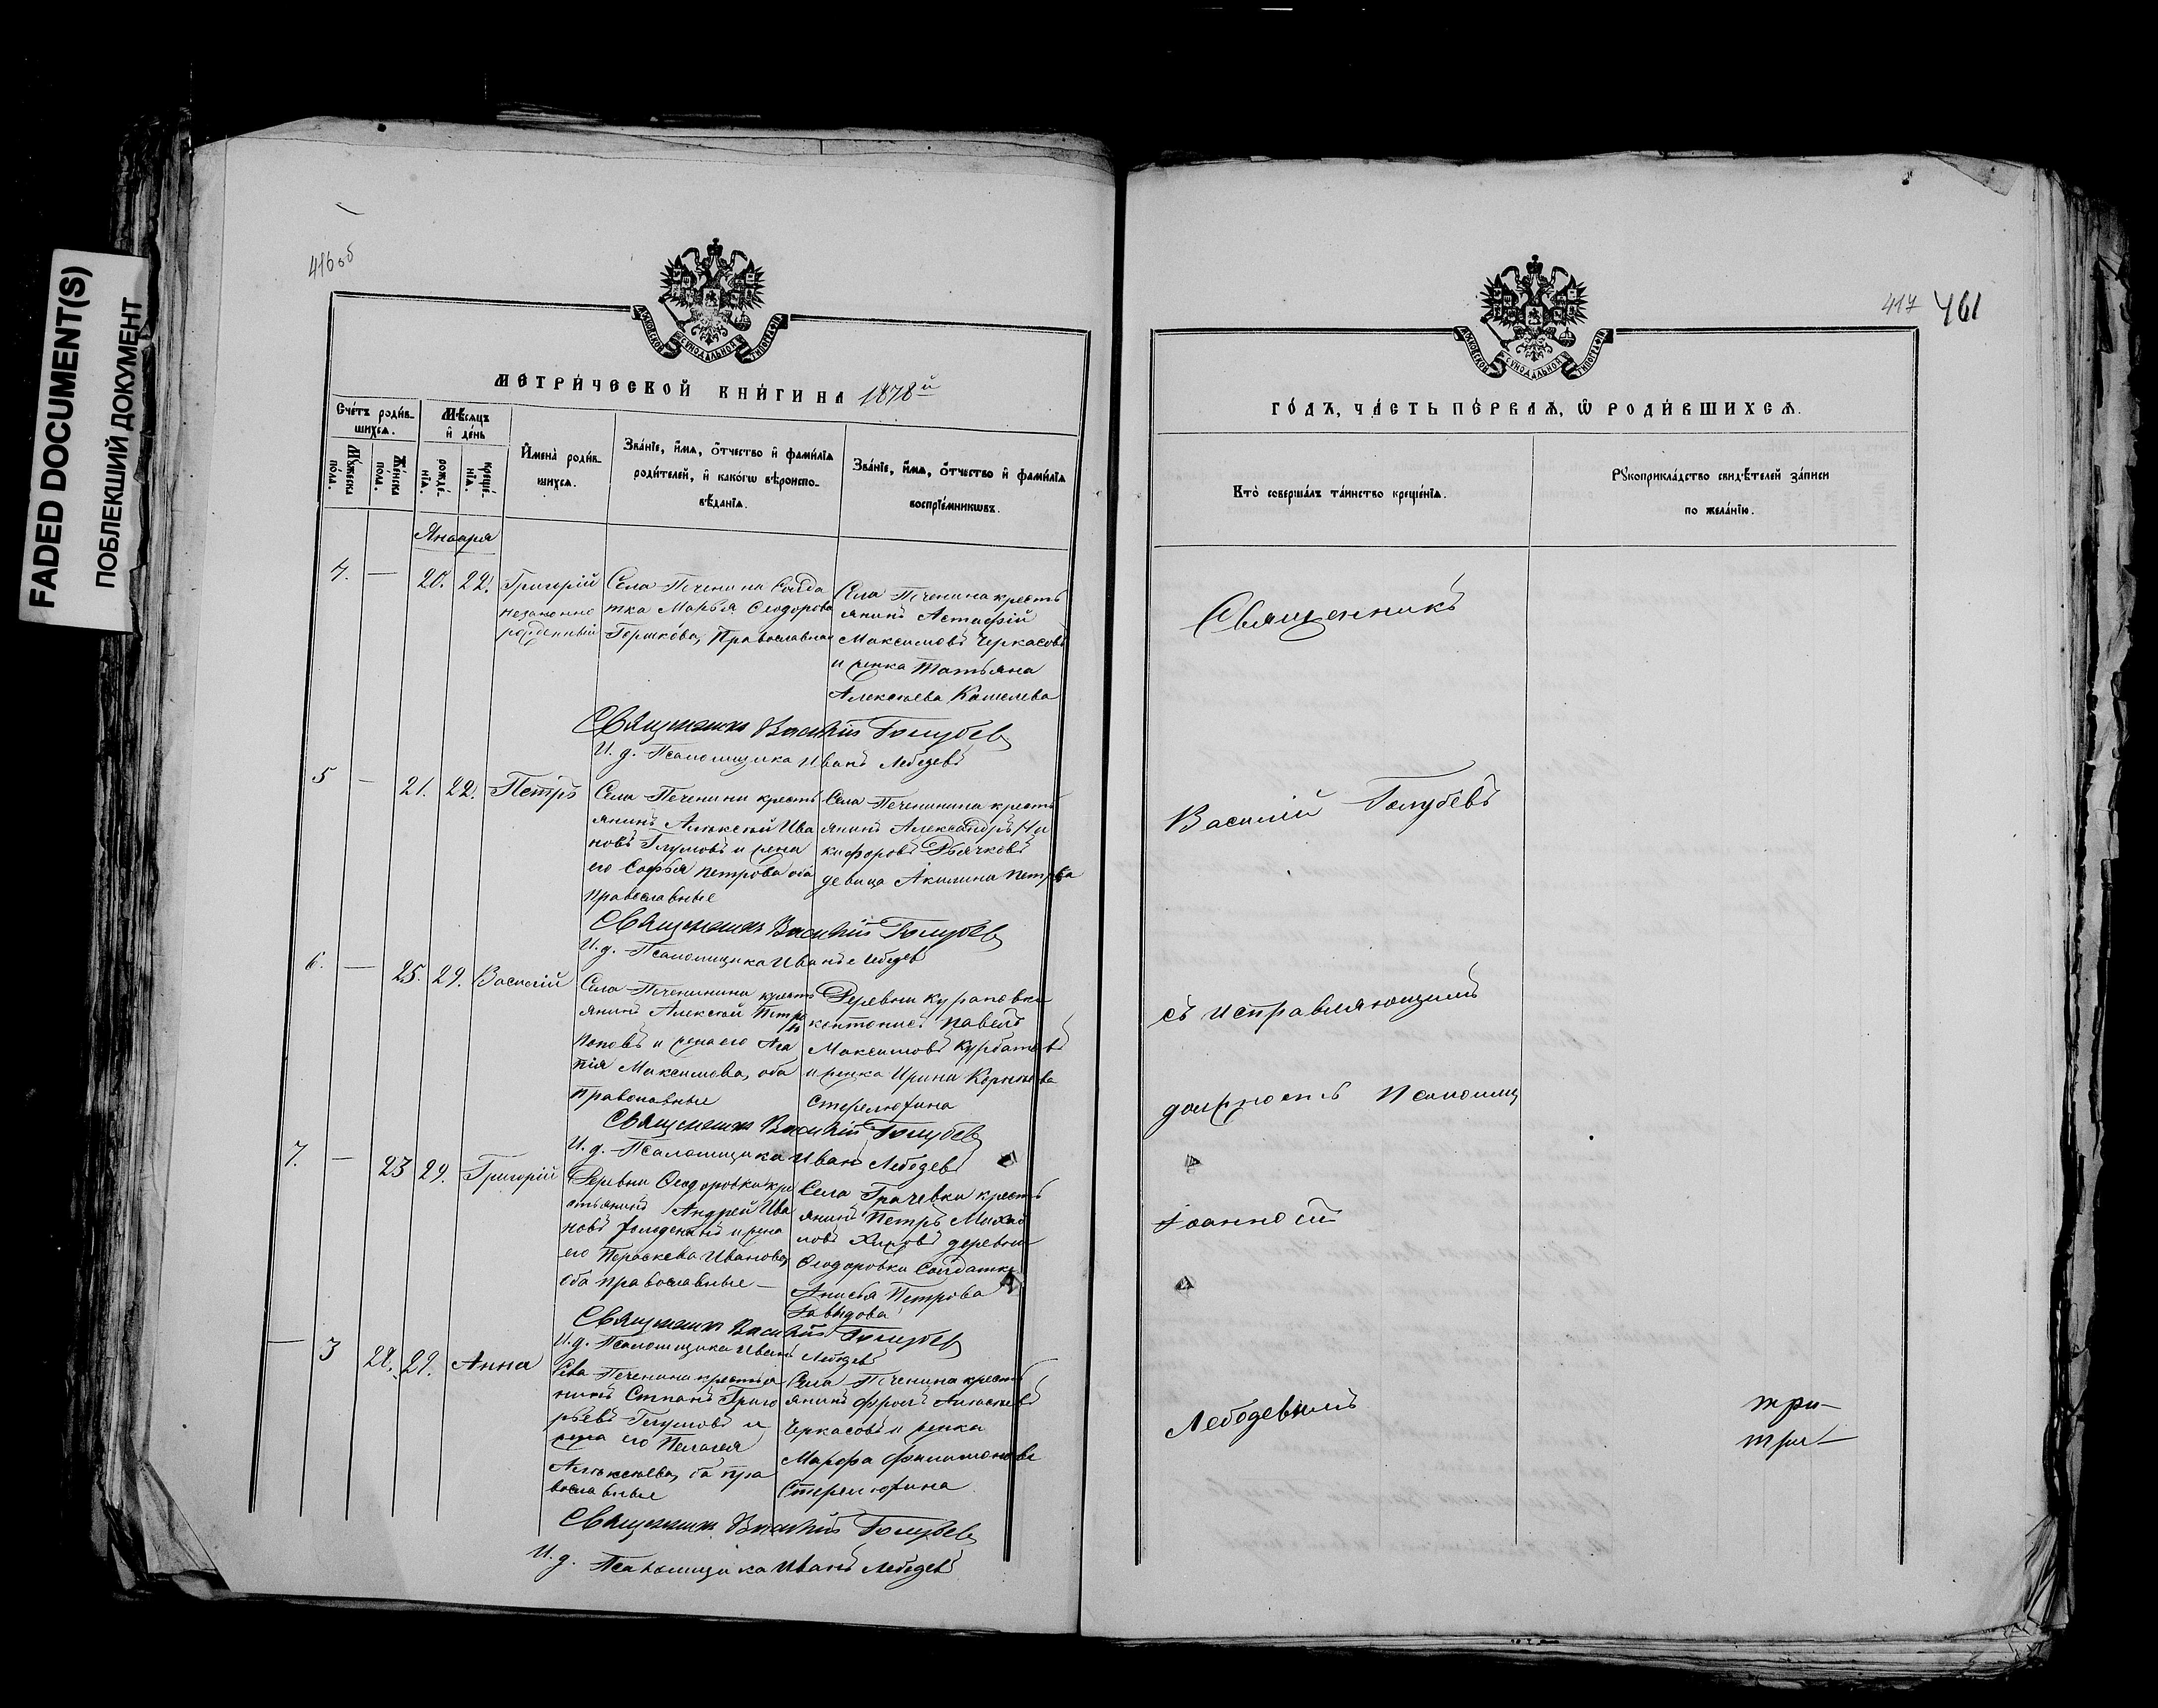 FADED DOCUMENT(S)
ПОБЛЕКШИЙ ДОКУМЕНТ
416об
МОСКОВСКОЙ СѴНОДАЛЬНОЙ ТИПОГРАФІИ
МЕТРИ́ЧЕСКОЙ КНИ́ГИ НА 1878й
Сче́тъ роди́в-
шихсѧ.
Мѣ́сѧцъ
и҆ де́нь
И҆мена̀ роди́в-
шихсѧ.
Зва́нїе, и҆́мѧ, о҆́тчество и҆ фами́лїѧ
роди́телей, и҆ како́гѡ вѣроиспо-
вѣ́данїѧ.
Зва́нїе, и҆́мѧ, о҆́тчество и҆ фами́лїѧ
воспрїе́мникѡвъ.
Мꙋ́жеска
по́ла.
Же́нска
по́ла.
рожде́-
нїѧ.
креще́-
нїѧ.
Января
4. — 20. 22. Григорій
незаконно
рожденный
Села Печенина Солда
тка Марья Ѳеодорова
Горшкова, Православная
Села Печенина кресть
янинъ Астафій
Максимовъ Черкасовъ
и женка Татьяна
Алексѣева Кошелева
Священникъ Василій Голубевъ
И. д. Псаломщика Иванъ Лебедевъ
5 — 21. 22. Петръ
Села Печенины кресть
янинъ Алексѣй Ива
новъ Глумовъ и жена
его Софья Петрова оба
Православные
Села Печенинина кресть
янинъ Александръ Ни
кифоровъ Дьячковъ
девица Акилина Петрова
Священникъ Василій Голубевъ
И. д. Псаломщика Иванъ Лебедевъ
6. — 25. 29. Василій
Села Печенинина кресть
янинъ Алексѣй Петро
въ
Поповъ и жена его Ага
пія Максимова, оба
православные
Деревни Кураповки
Павелъ
Максимовъ Курбатовъ
и женка Ирина Корнѣева
Стерлюхина
Священникъ Василій Голубевъ
И. д. Псаломщика Иванъ Лебедевъ
7. — 23 29. Григорій
Деревни Ѳеодоровки кре
стьянинъ Андрей Ива
новъ и жена
его Параскева Иванова,
оба православные —
Села Грачевки кресть
янинъ Петръ Михай
ловъ деревни
Ѳеодоровки Солдатка
Анисья Петрова
Давыдова
Священникъ Василій Голубевъ
И. д. Псаломщика Иванъ Лебедевъ
— 3 28. 29. Анна
Села Печенина крестья
нинъ Степанъ Григо
рьевъ Глумовъ и
жена его Пелагея
Алексѣева, оба пра
вославные
Села Печенина кресть
янинъ Фролъ Алексѣевъ
Черкасовъ и женка
Марфа Филимонова
Стерлюхина
Священникъ Василій Голубевъ
И. д. Псаломщика Иванъ Лебедевъ
417 461
МОСКОВСКОЙ СѴНОДАЛЬНОЙ ТИПОГРАФІИ
ГО́ДЪ, ЧА́СТЬ ПЕ́РВАѦ, Ѡ҆ РОДИ́ВШИХСѦ.
Кто̀ соверша́лъ та́инство креще́нїѧ.
Рꙋкоприкла́дство свидѣ́телей за́писи
по жела́нїю.
Священникъ
Василій Голубевъ
съ исправляющимъ
должность Псаломщ
Іоанномъ
Лебедевымъ
три—
три—